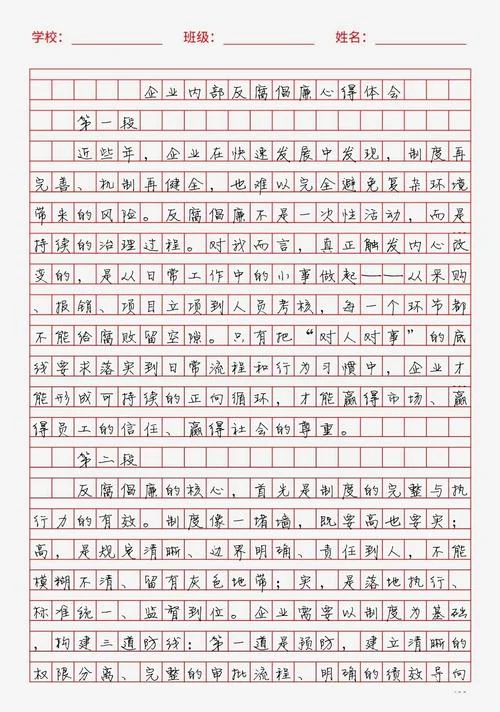 学校： 班级： 姓名：
企业内部反腐倡廉心得体会
第一段
近些年，企业在快速发展中发现，制度再
完善、机制再健全，也难以完全避免复杂环境
带来的风险。反腐倡廉不是一次性活动，而是
持续的治理过程。对我而言，真正触发内心改
变的，是从日常工作中的小事做起——从采购
、报销、项目立项到人员考核，每一个环节都
不能给腐败留空隙。只有把“对人对事”的底
线要求落实到日常流程和行为习惯中，企业才
能形成可持续的正向循环，才能赢得市场、赢
得员工的信任、赢得社会的尊重。
第二段
反腐倡廉的核心，首先是制度的完整与执
行力的有效。制度像一堵墙，既要高也要实；
高，是规定清晰、边界明确、责任到人，不能
模糊不清、留有灰色地带；实，是落地执行、
标准统一、监督到位。企业需要以制度为基础
，构建三道防线：第一道是预防，建立清晰的
权限分离、完整的审批流程、明确的绩效导向